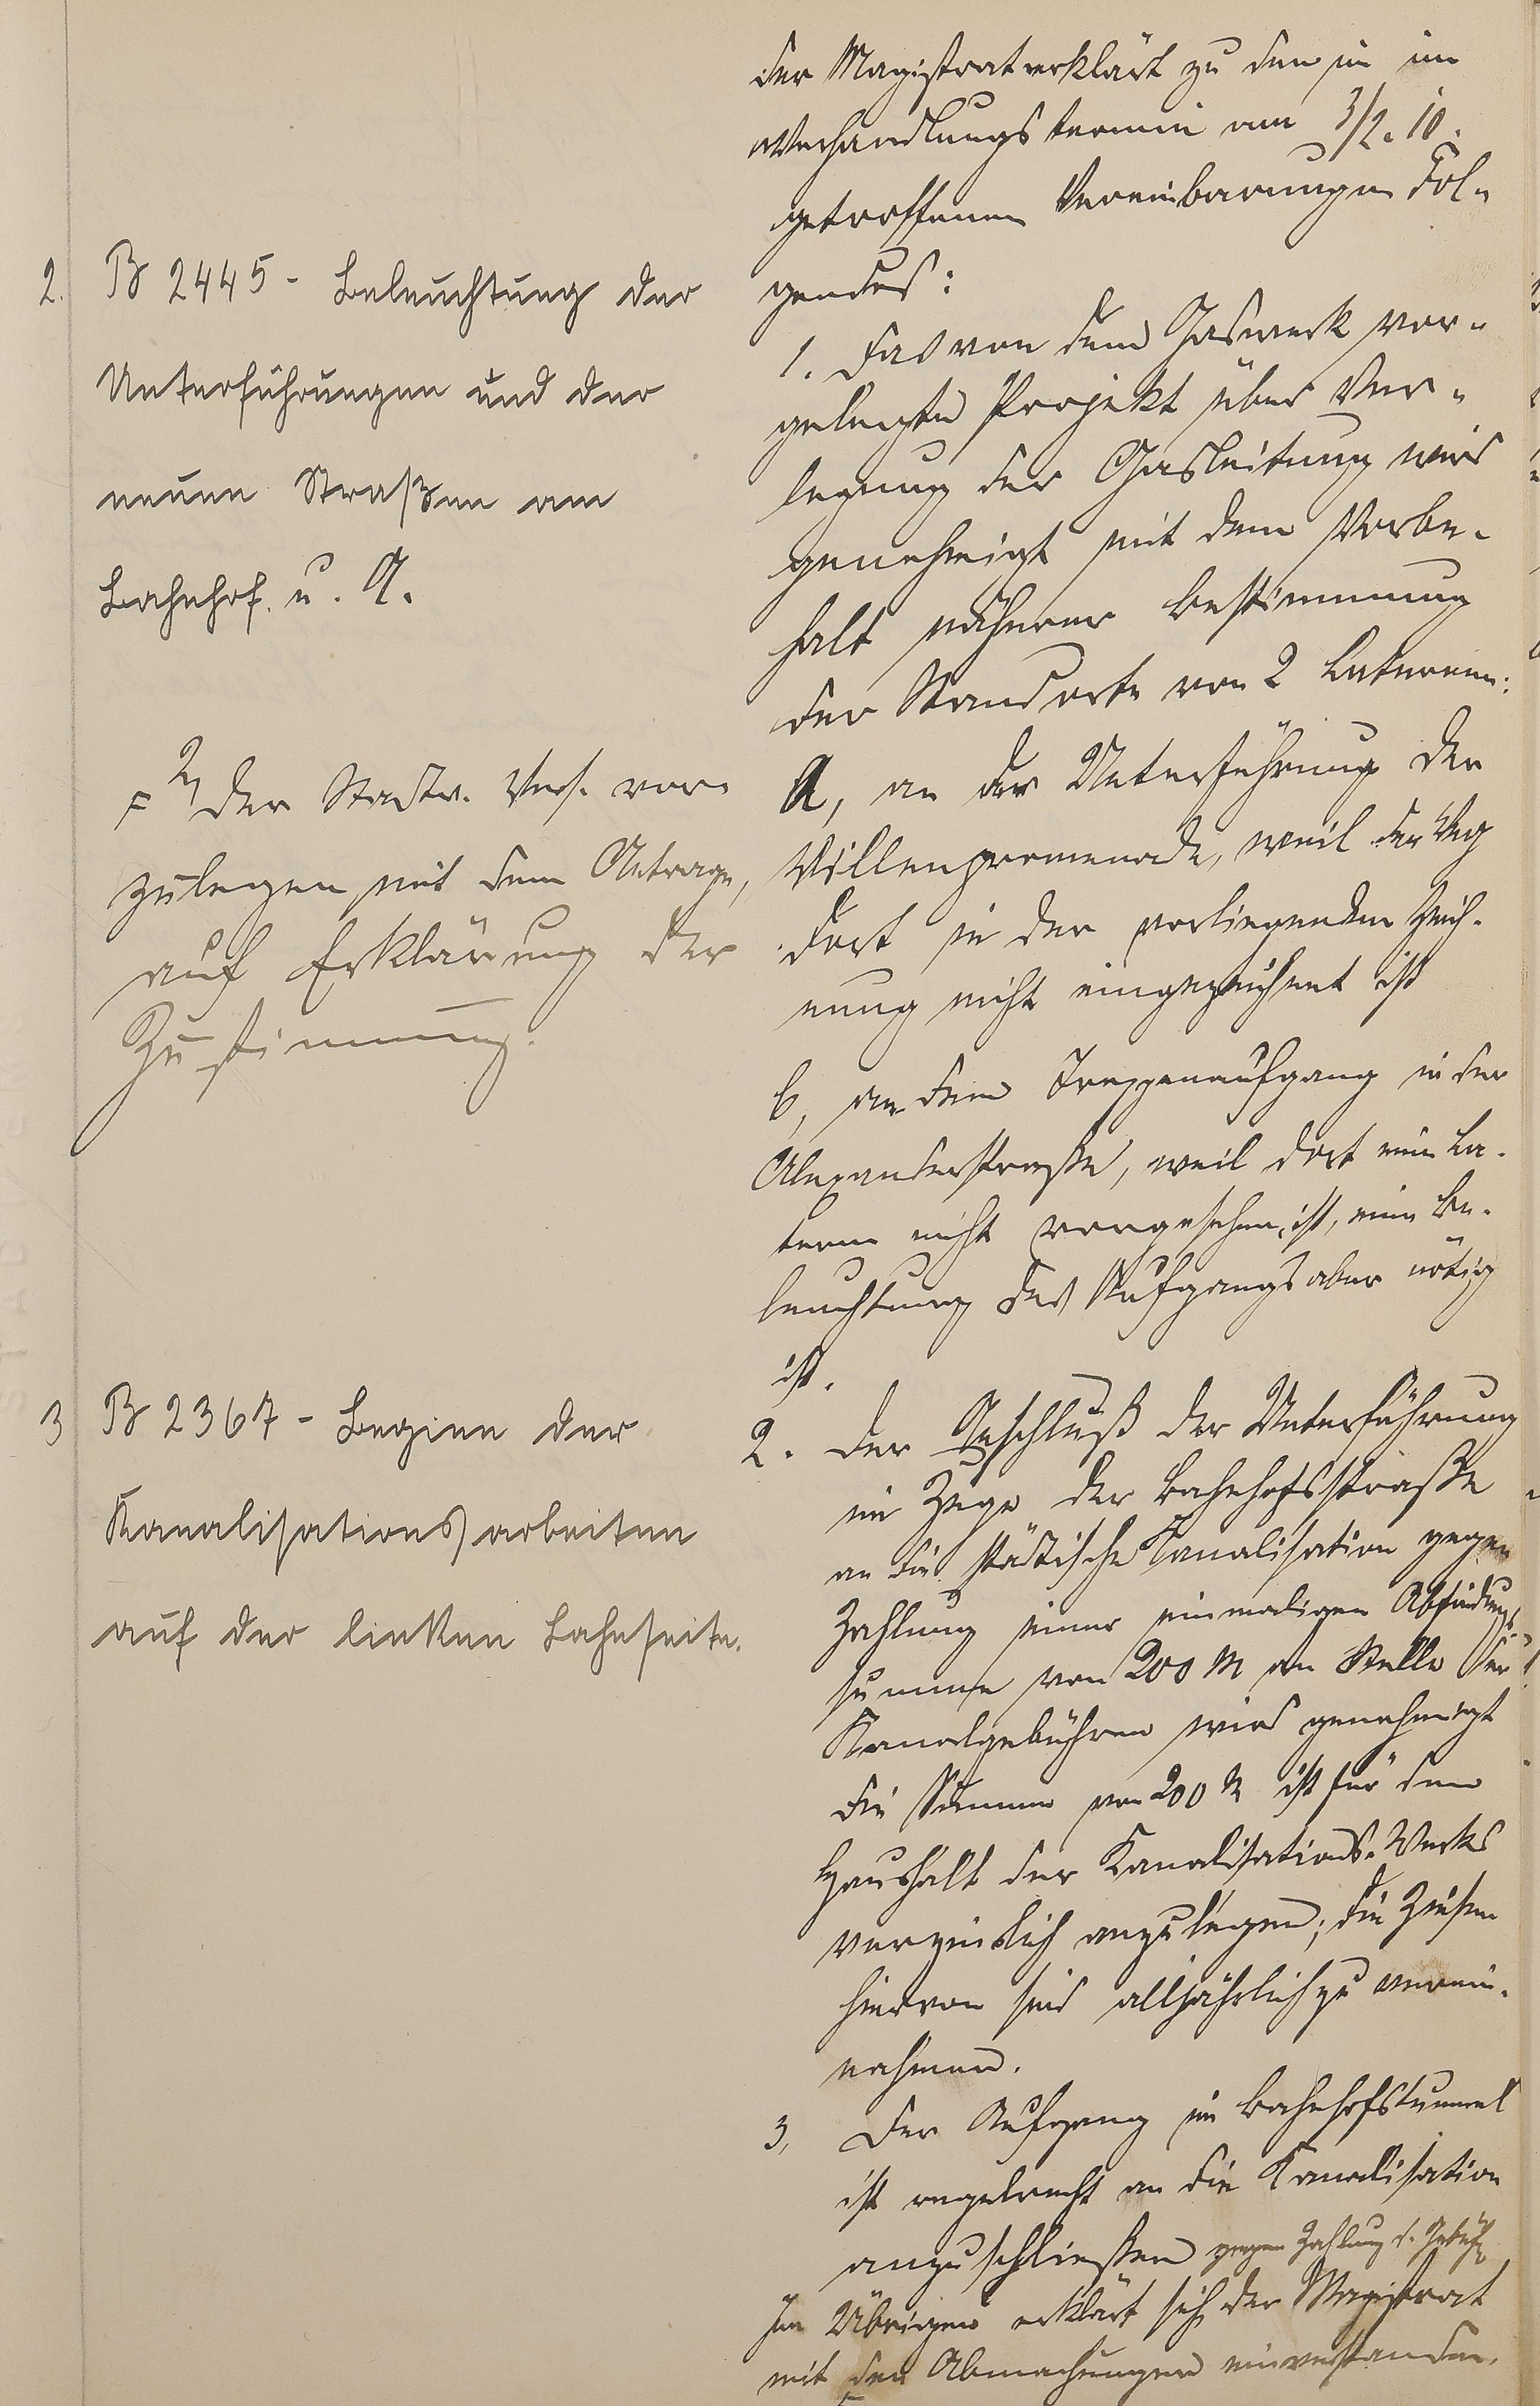 2. B 2445 - Beleuchtung der
Unterführungen und der
neuen Straßen am
Bahnhof u. A.
2) der Stadtv. Vers. vor=
zulegen mit dem Antrage,
auf Erklärung der
Zustimmung.
3 B 2367 - Beginn der
Kanalisationsarbeiten
auf der linken Bahnseite.
der Magistrat erklärt zu den in im
Verhandlungstermin am 3/2. 10.
getroffenen Vereinbarungen Fol=
gendes:
1. Das von dem Gaswerk vor=
gelegte Projekt über Ver=
legung der Gasleitung wird
genehmigt mit dem Vorbe=
halt näherer Bestimmung
der Standorte von 2 Laternen:
a, an der Unterführung der
Villenpromenade, weil der Weg
dort in der vorliegenden Zeich=
nung nicht eingezeichnet ist
b, an dem Treppenaufgang in der
Alexanderstraße, weil dort eine La=
terne nicht vorgesehen ist, eine Be=
leuchtung des Aufgangs aber nötig
ist.
2. Der Anschluß der Unterführung
im Zuge der Bahnhofsstraße
an die städtische Kanalisation gegen
Zahlung einer einmaligen Abfindungs=
summe von 200 M an Stelle der
Kanalgebühren wird genehmigt
Die Summe von 200 M ist für den
Haushalt der Kanalisations-Werks
verzinslich anzulegen; die Zinsen
hiervon sind alljährlich zu verein=
nahmen.
3, Der Aufgang im Bahnhofstunnel
ist regelrecht an die Kanalisation
anzuschließen gegen Zahlung d. Gebühr
Im Übrigen erklärt sich der Magistrat
mit den Abmachungen einverstanden.